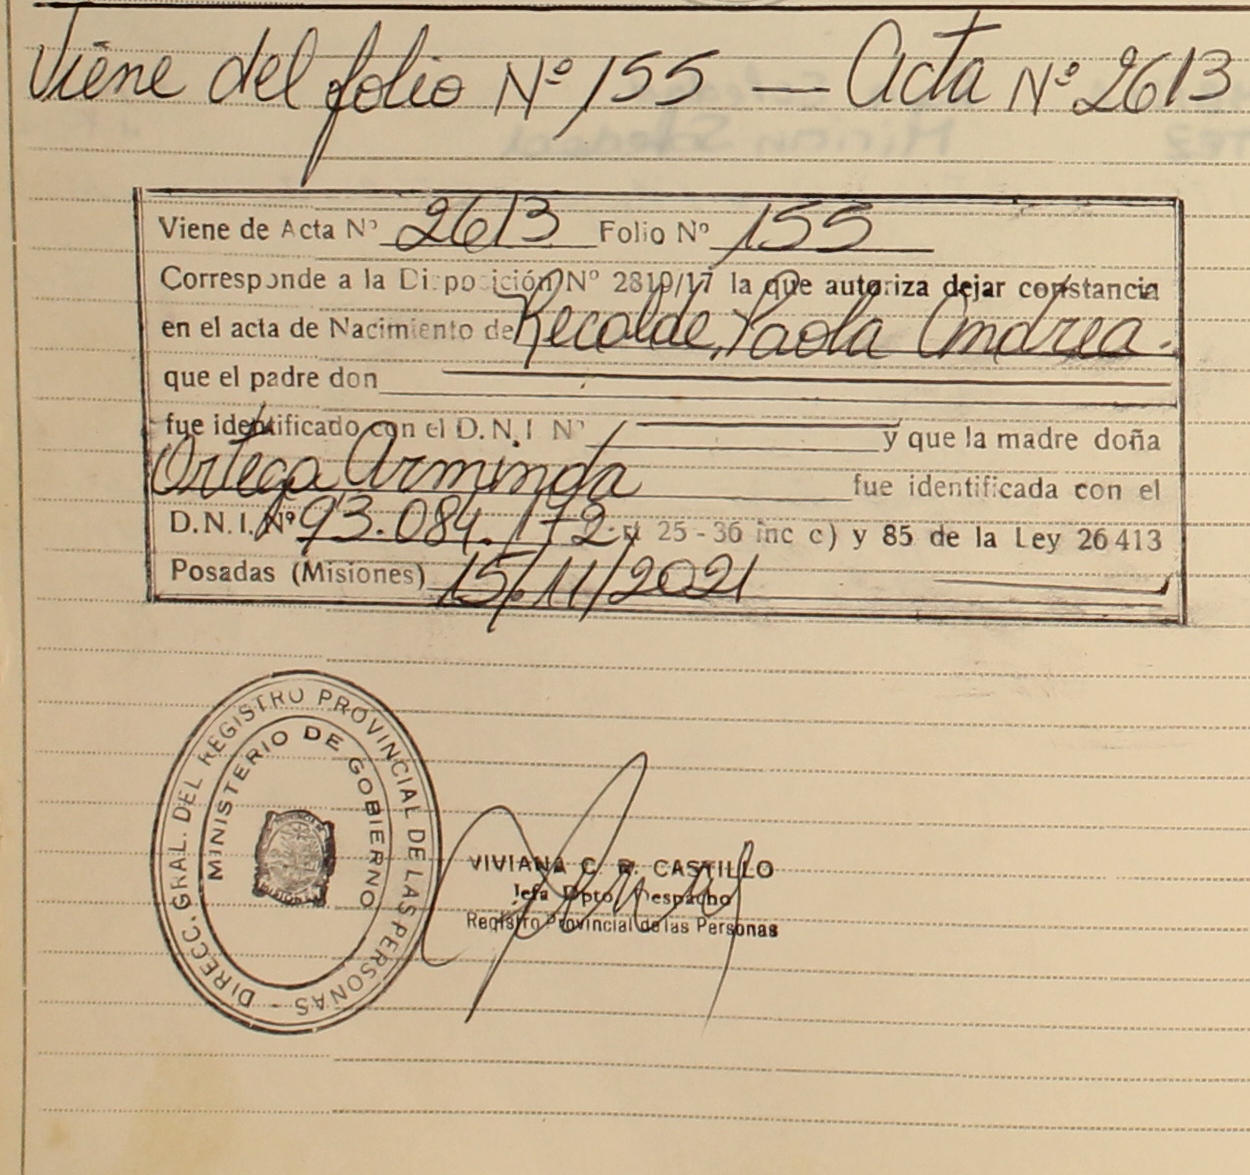 Viene del folio Nº 155 — Acta Nº 2613
Viene de Acta Nº 2613 Folio Nº 155
Corresponde a la Disposición Nº 2819/17 la que autoriza dejar constancia
en el acta de Nacimiento de Recalde, Paola Andrea.
que el padre don
fue identificado con el D.N.I Nº y que la madre doña
Ortega Arminda fue identificada con el
D.N.I. Nº 93.084.172. rt 25-36 inc c) y 85 de la Ley 26413
Posadas (Misiones) 15/11/2021
DIRECC. GRAL. DEL REGISTRO PROVINCIAL DE LAS PERSONAS -
MINISTERIO DE GOBIERNO
VIVIANA C. R. CASTILLO
Jefa Dpto Despacho
Registro Provincial de las Personas